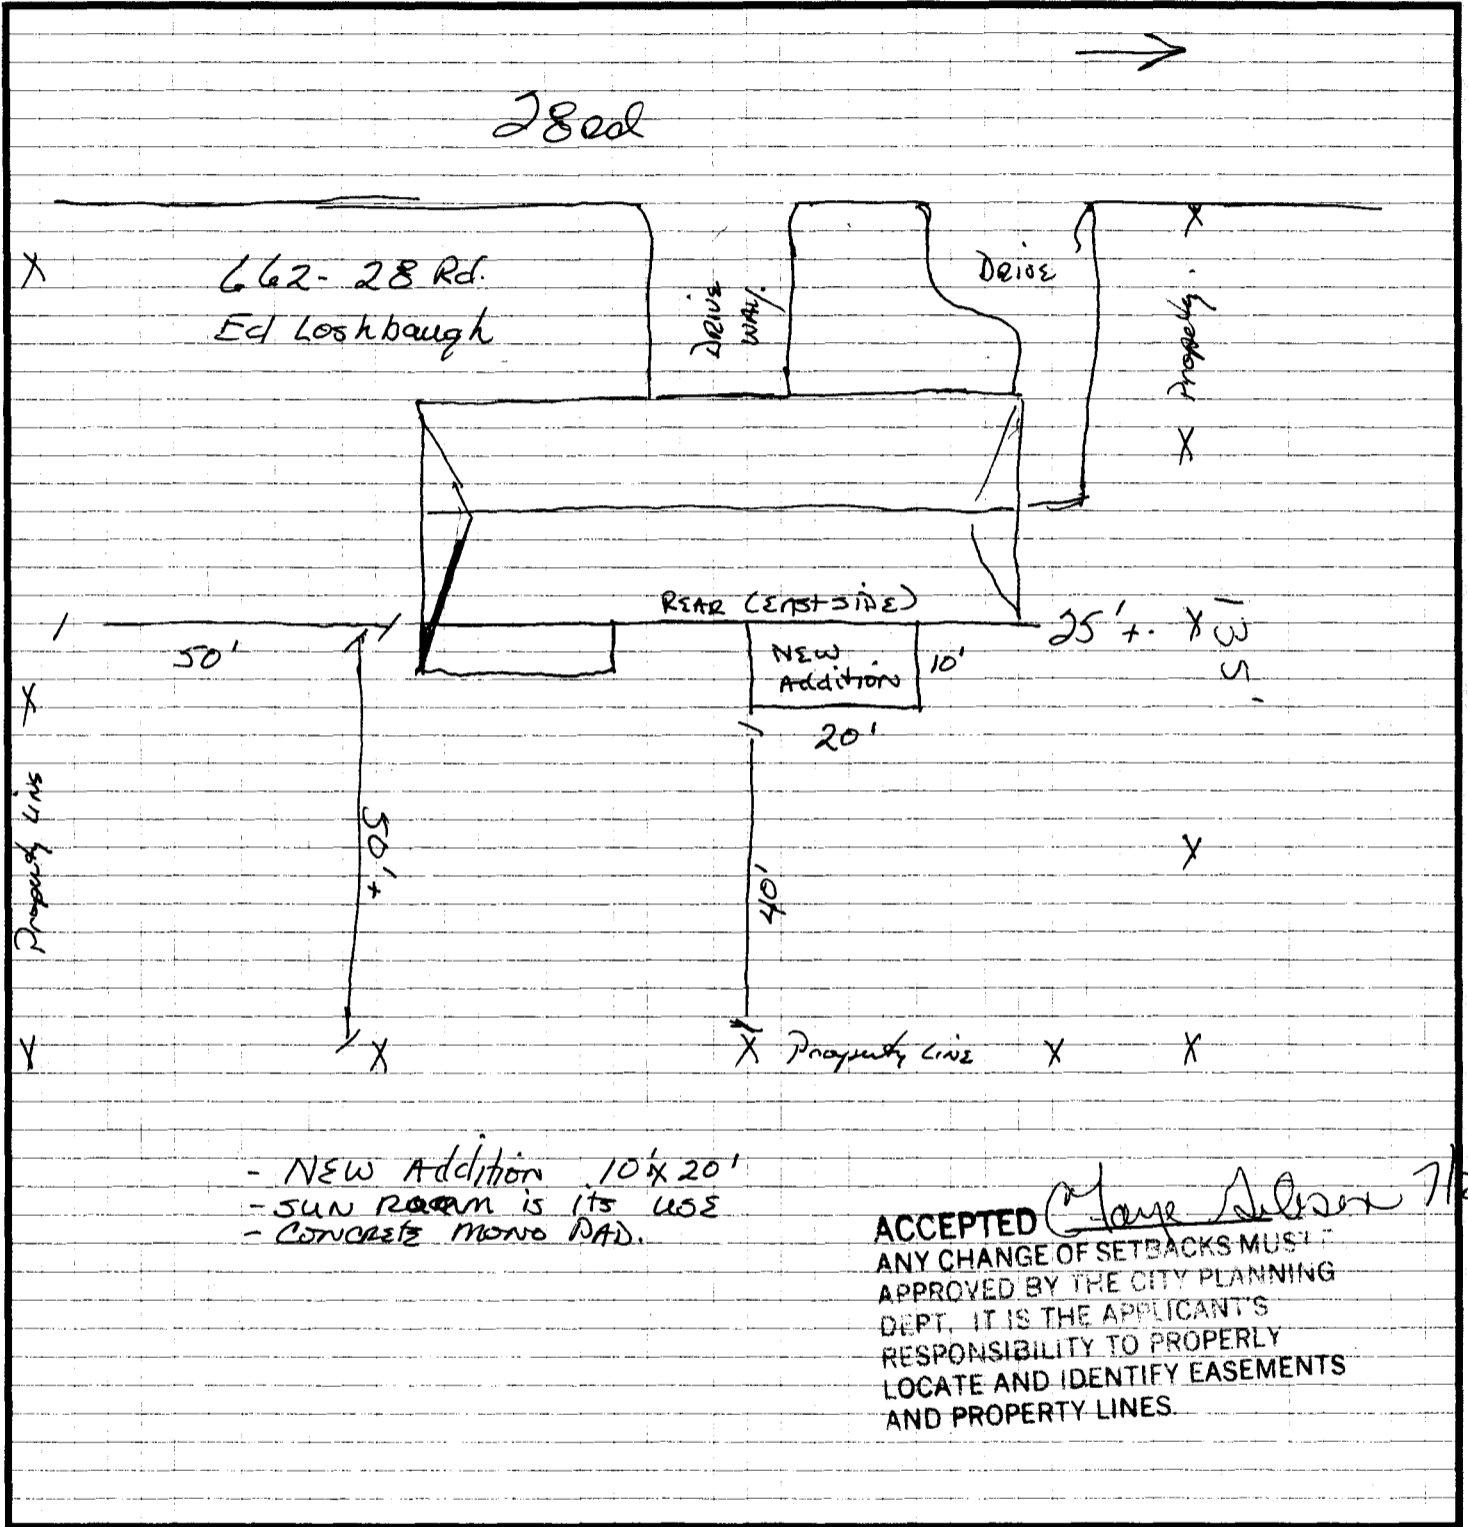 28 Rd
662- 28 Rd.
Ed Loshbaugh
DRIVE
WAY.
DRIVE
Property.
REAR (EAST SIDE)
50'
25'+.
135'
NEW
Addition
10'
20'
Property Line
50'+
40'
Property Line
- NEW Addition 10'x20'
- SUN ROOM is its USE
- CONCRETE MONO PAD.
ACCEPTED
ANY CHANGE OF SETBACKS MUST
APPROVED BY THE CITY PLANNING
DEPT. IT IS THE APPLICANT'S
RESPONSIBILITY TO PROPERLY
LOCATE AND IDENTIFY EASEMENTS
AND PROPERTY LINES.